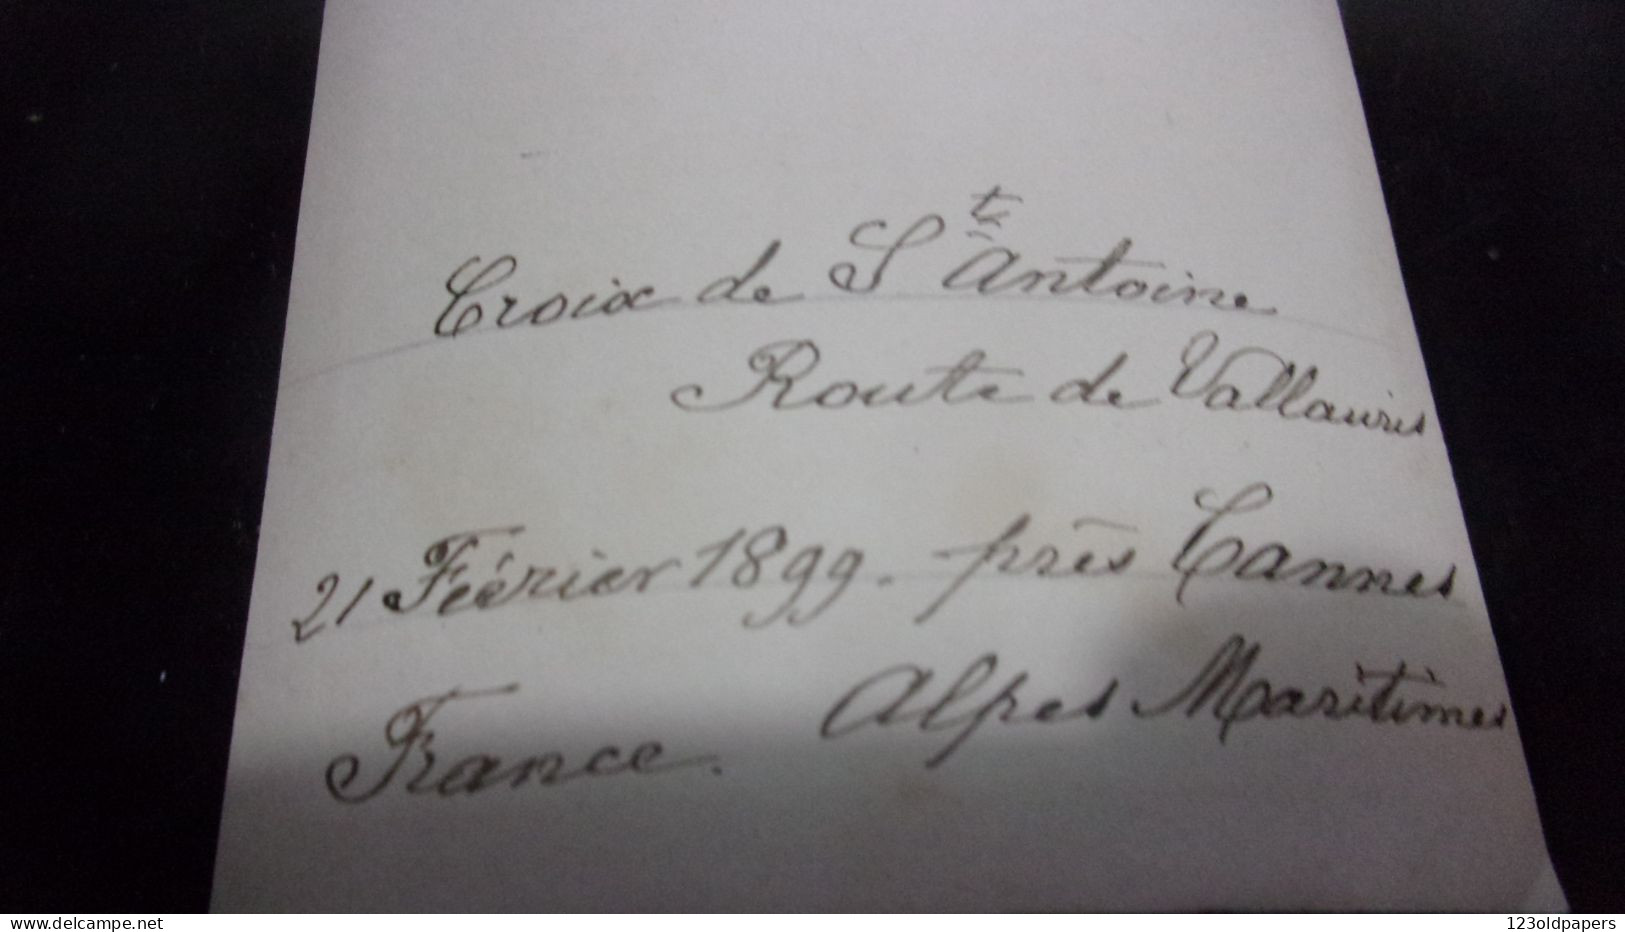 Croix de St Antoine
Route de Vallauris
21 Février 1899. près Cannes
France. Alpes Maritimes
www.delcampe.net
123oldpapers